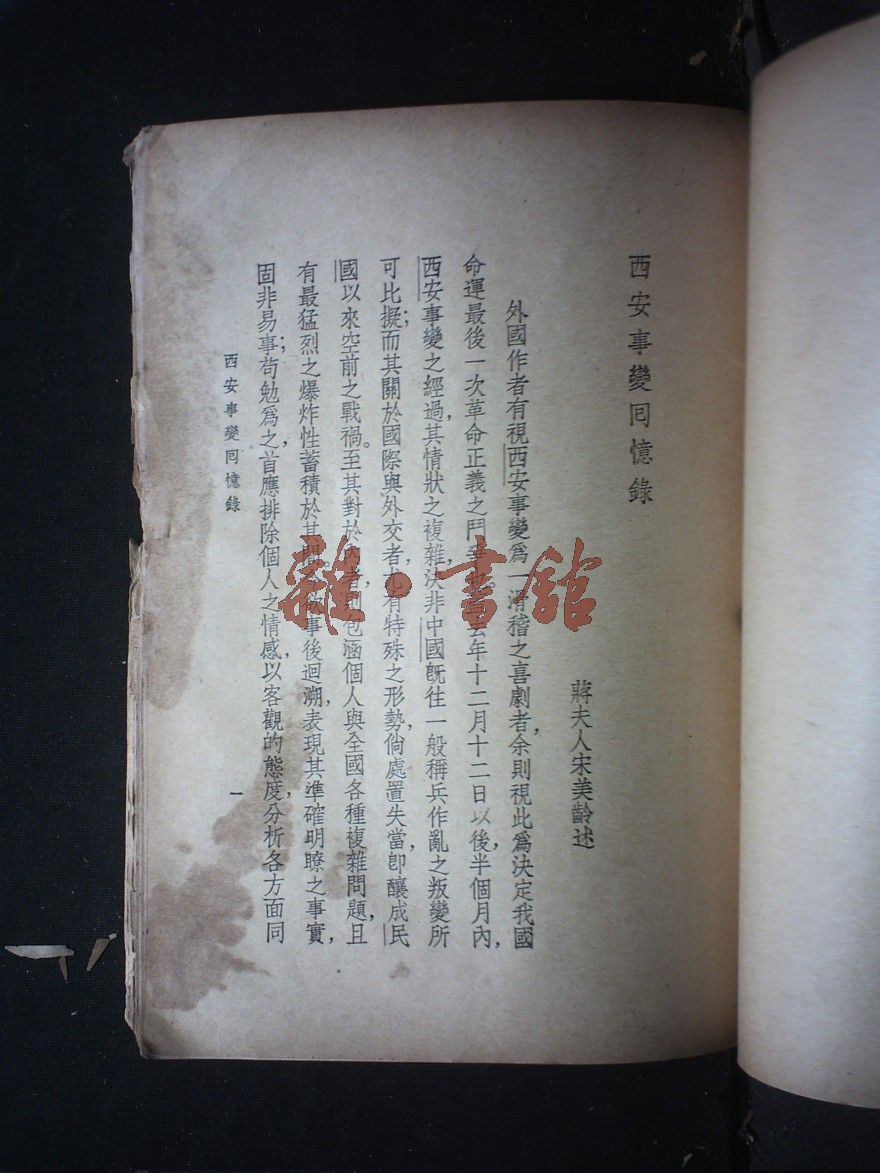 西安事變囘憶錄
蔣夫人宋美齡述
外國作者有視西安事變爲一滑稽之喜劇者，余則視此爲決定我國
命運最後一次革命正義之鬥爭也。去年十二月十二日以後，半個月內，
西安事變之經過，其情狀之複雜，決非中國旣往一般稱兵作亂之叛變所
可比擬；而其關於國際與外交者，尤有特殊之形勢，倘處置失當，卽釀成民
國以來空前之戰禍。至其對於內者，則包涵個人與全國各種複雜問題，且
有最猛烈之爆炸性蓄積於其間。今欲事後迴溯，表現其準確明瞭之事實，
固非易事；苟勉爲之，首應排除個人之情感，以客觀的態度，分析各方面同
西安事變囘憶錄
一
雜·書館